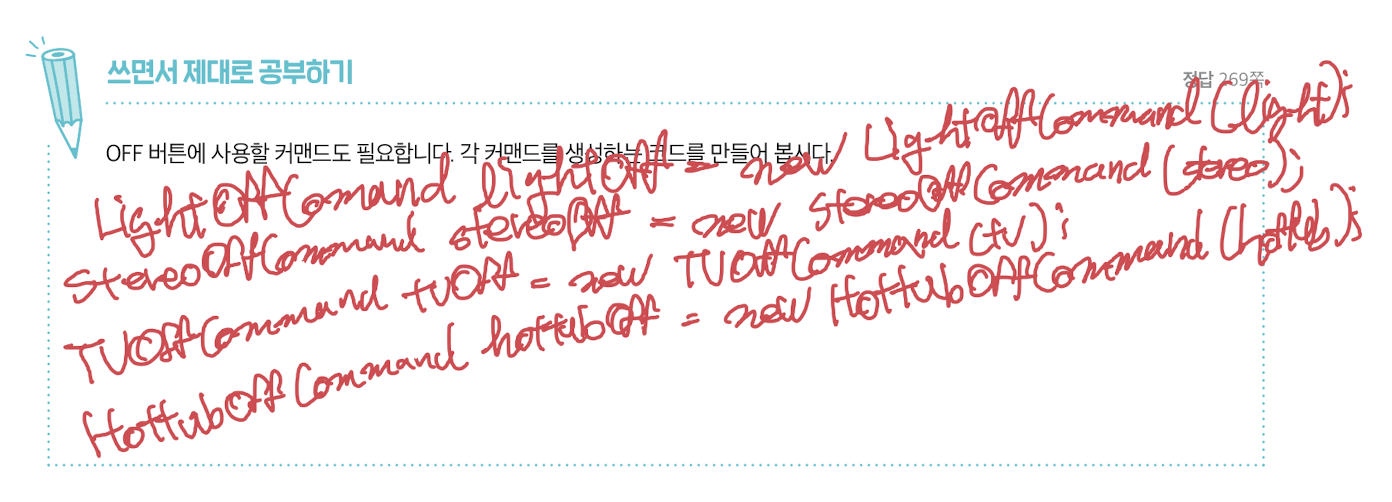 쓰면서 제대로 공부하기
정답 269쪽
OFF 버튼에 사용할 커맨드도 필요합니다. 각 커맨드를 생성하는 코드를 만들어 봅시다.
LightOffComand lightOff = new LightOffCommand (light);
StereoOffCommand stereoOff = new StereoOffCommand (stereo);
TVOffCommand tvOff = new TVOffCommand (tv);
HottubOffCommand hottubOff = new HottubOffCommand (hottub);